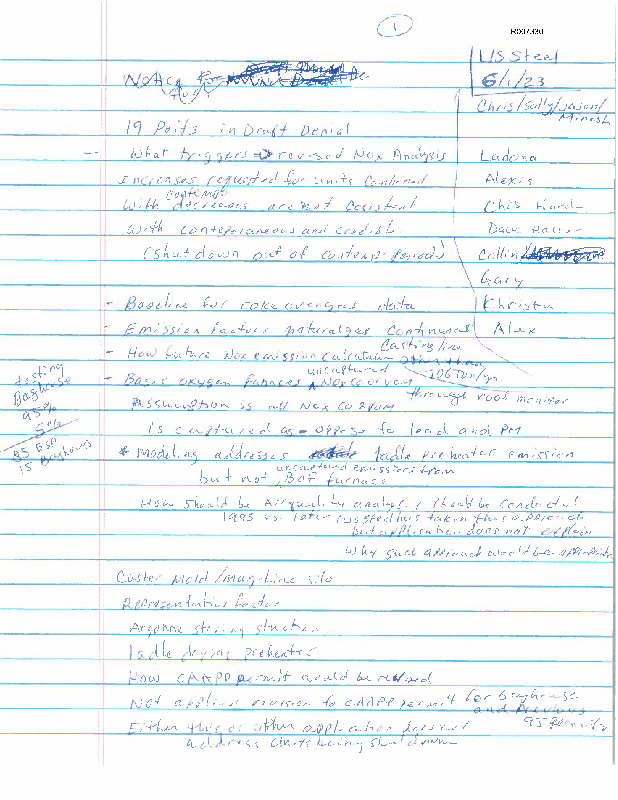 1
US Steel
6/1/23
Chris/Sally/Jason/
19 Points in Draft Denial
- What triggers revised Nox Analysis
Ladonna
Increases requested for units Combined
Alexis
With decreases are not Cosistent
Chis
with conteporaneous and credish
Dave
(Shut down out of contemp: Periods)
Collin
Gary
- Baseline for coke oven gas data
Christa
- Emission factors natural gas Continuous
Alex
Casting line
- How future Nox emission calculation other than
uncaptured
100 Ton/yr.
- Basic oxygen furnaces Nox Co or vom
through roof monitor
testing
Baghouse
95%
5%
85 ESP
15 Baghouse
Assumption is all Nox Co & vom
Is captured as oppose to lead and PM
* Modeling addresses ladle preheater emission
uncaptured emissions from
but not BOF furnace
How should be Air quality analysis should be conducted
1993 vs. later US Steel has taken this approach
but application does not explain
why such approach would be appropriate
Caster Mold / Mag-Line silo
Representative factor
Argonne stirring station
ladle drying preheaters
How CAAPP permit would be revised
Not applied revision to CAAPP permit for baghouse
and previous
Either this or other application does not
address units being shutdown